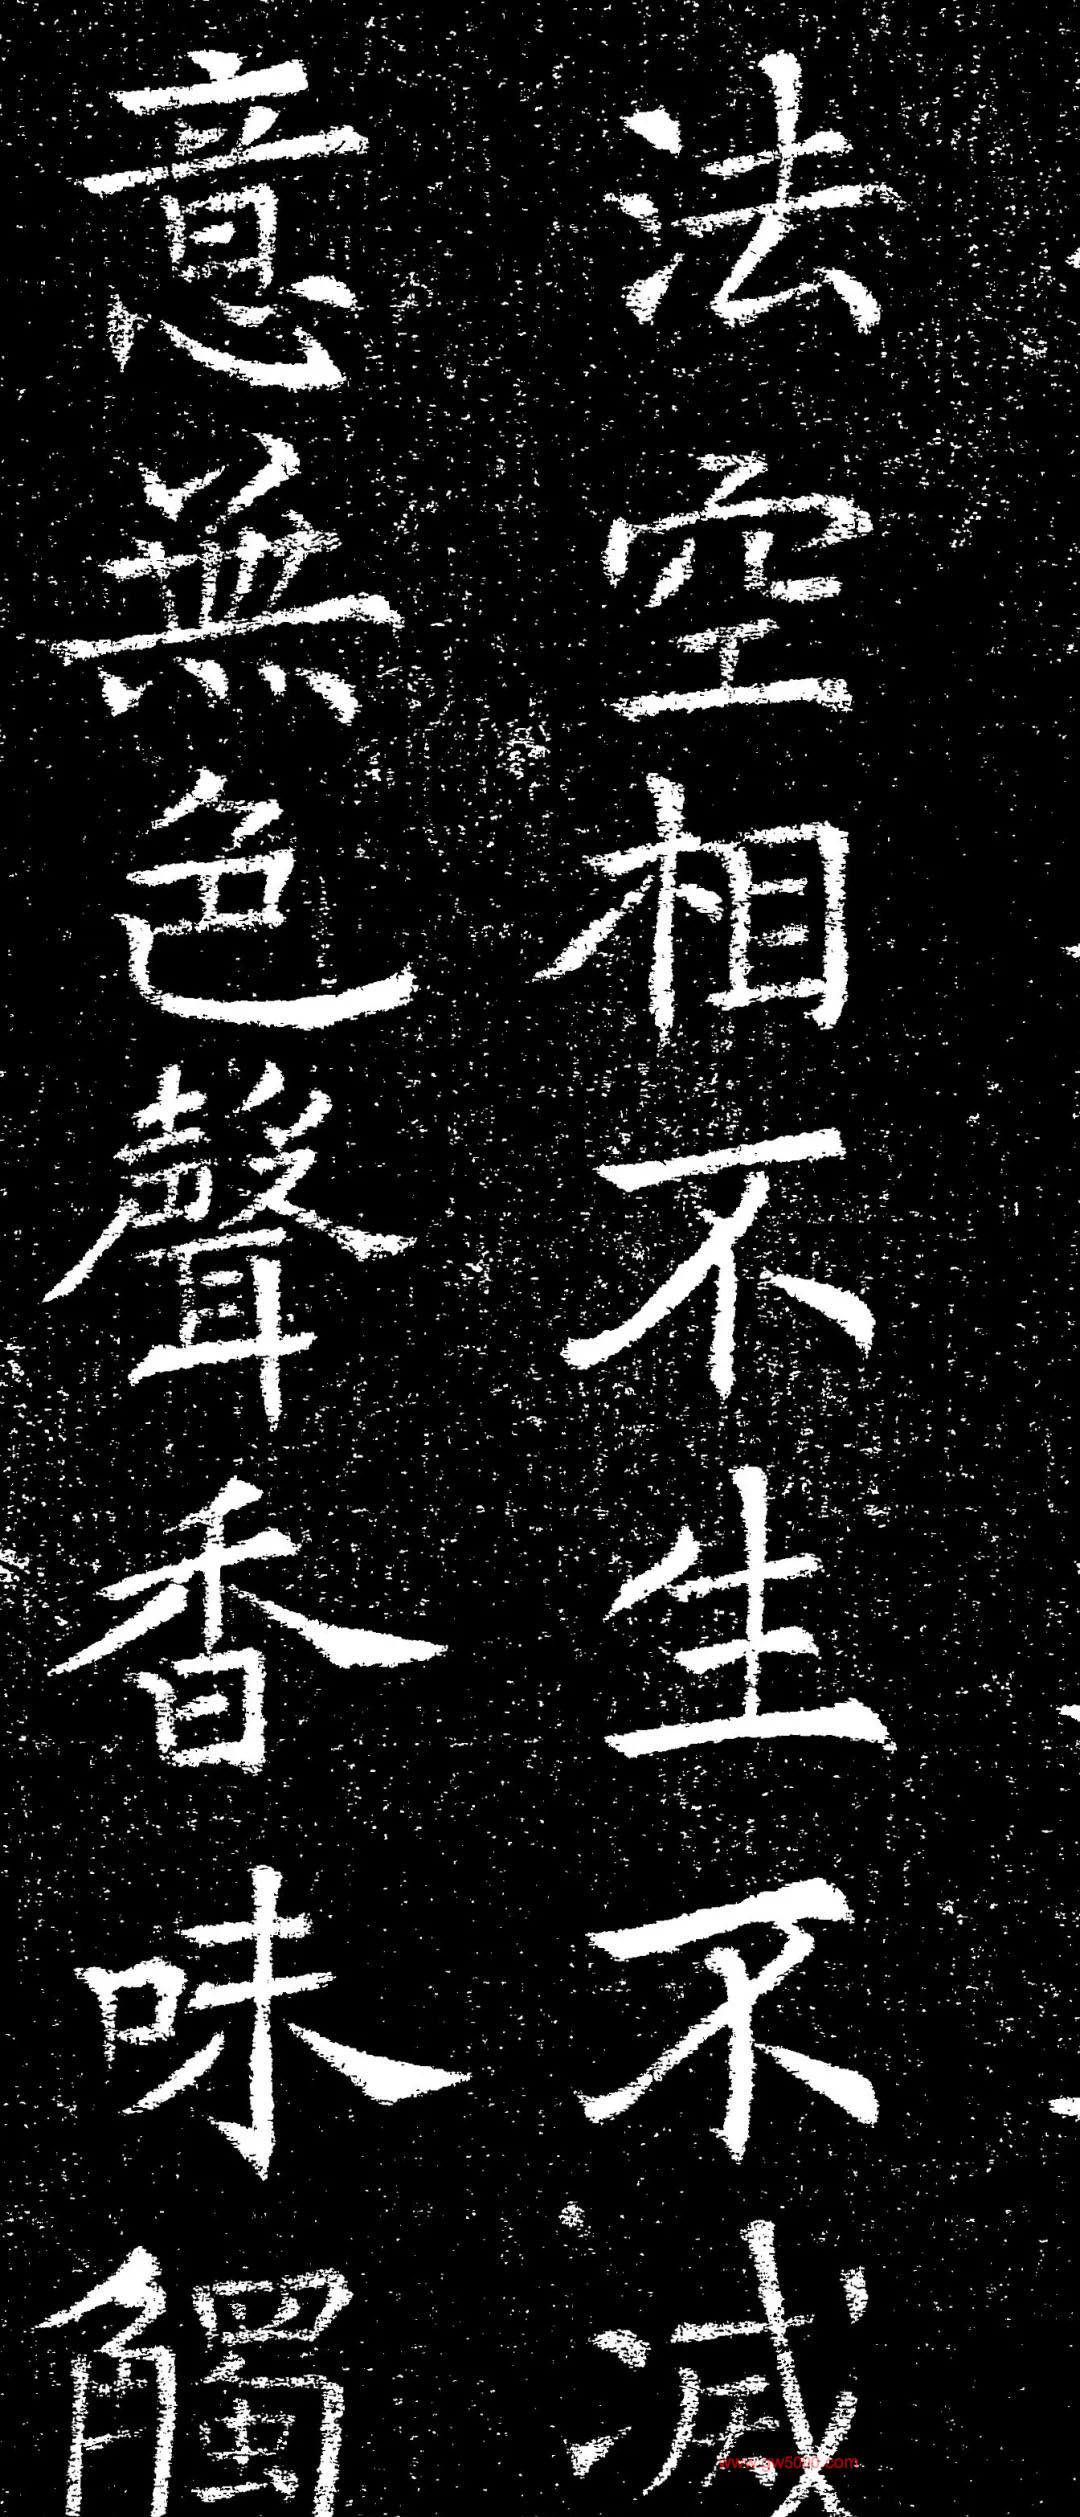 法空相不生不滅
意無色聲香味觸
www.gw5000.com